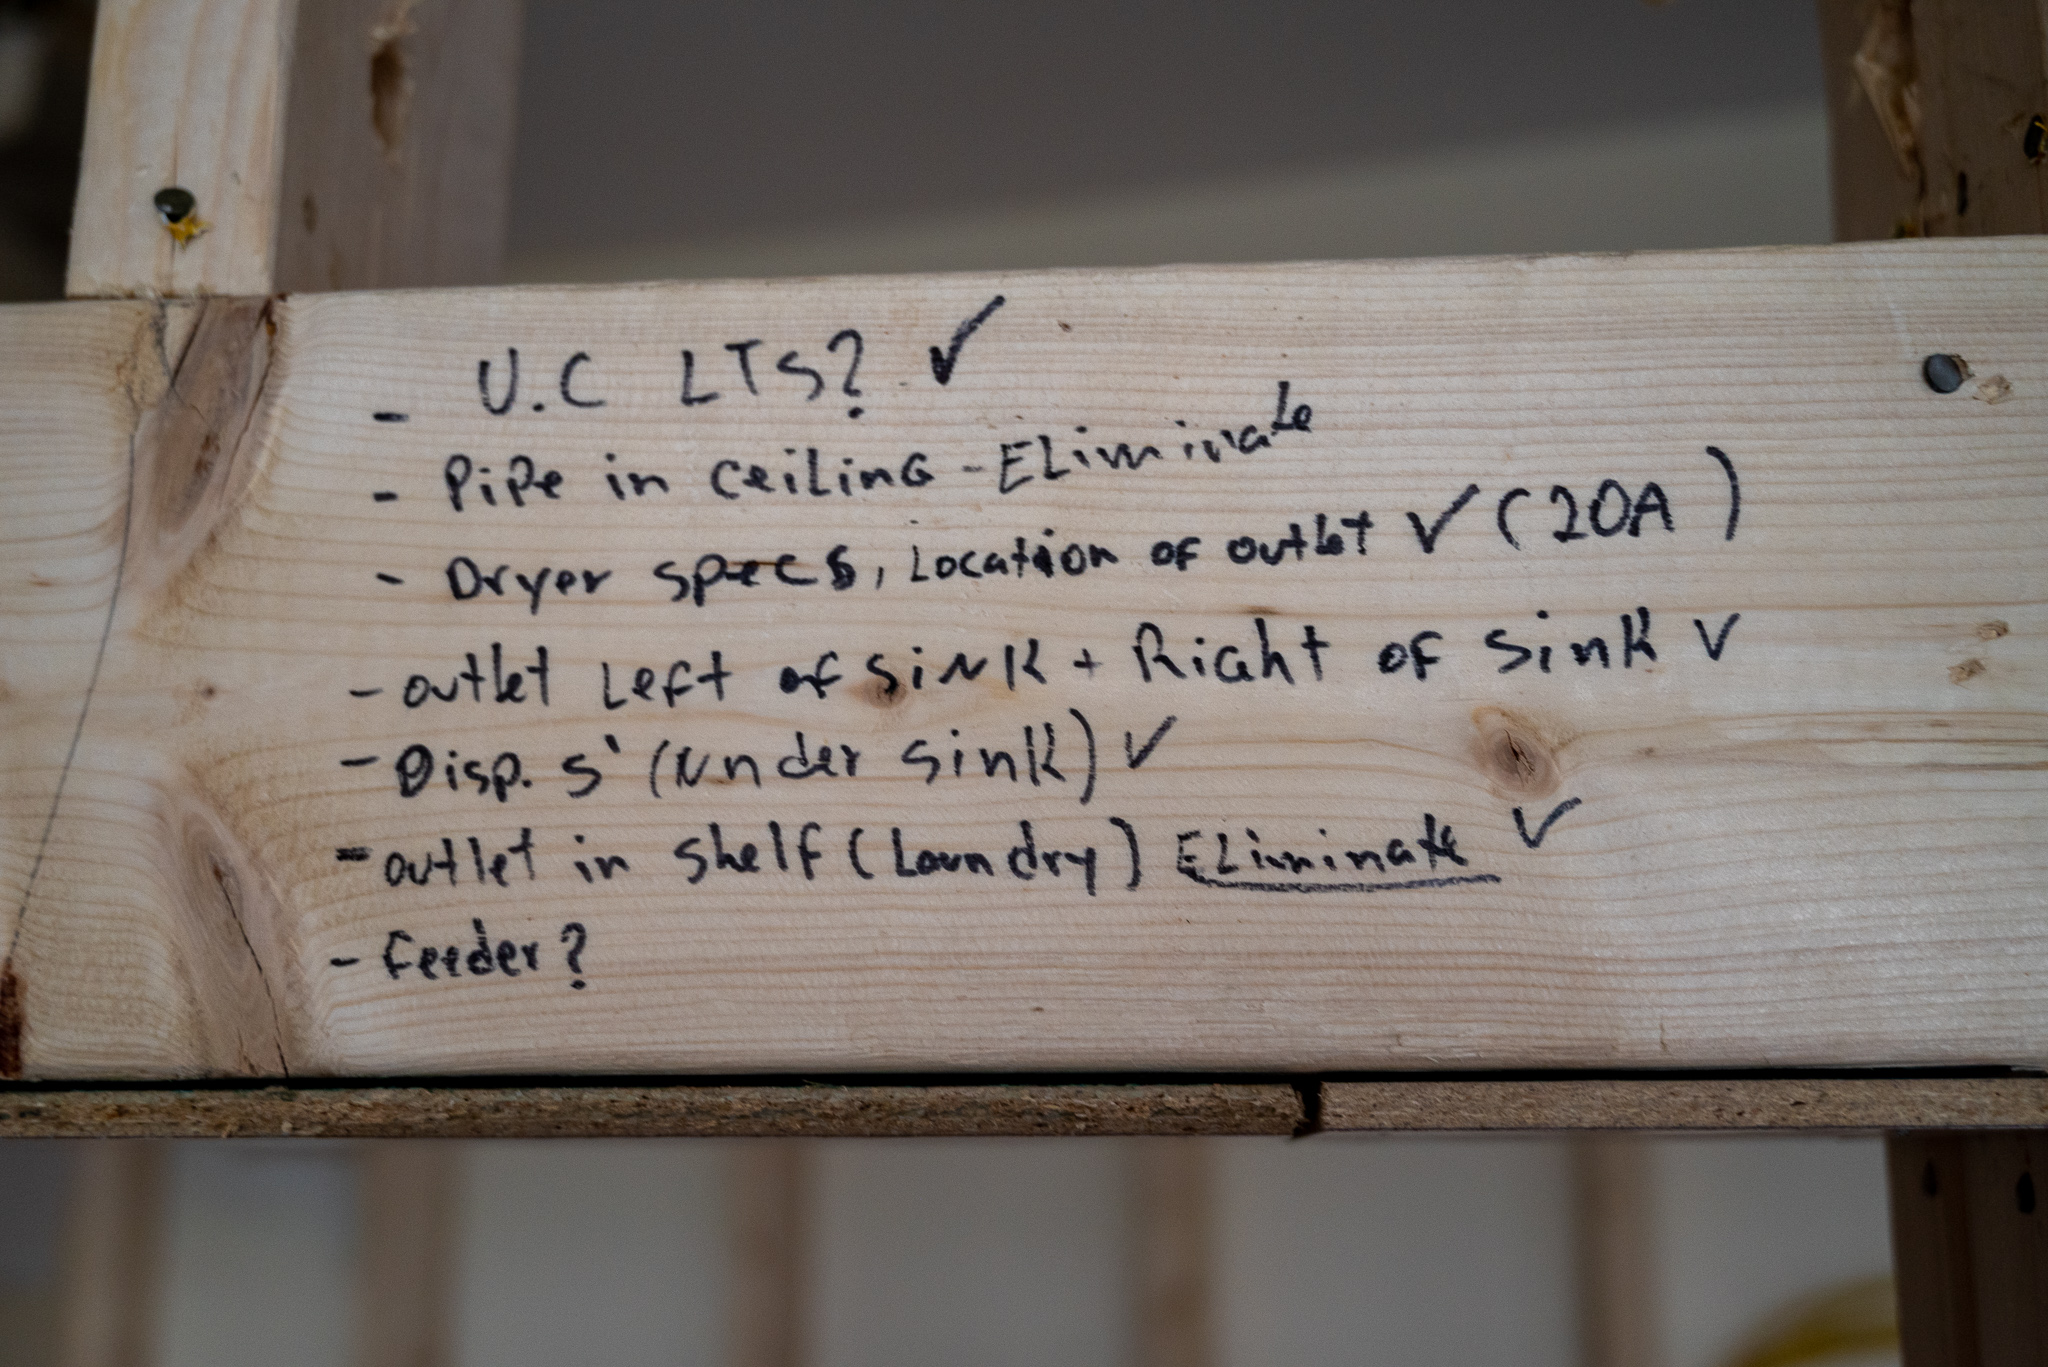 - U.C LTS? ✓
- Pipe in ceiling - Eliminate
- Dryer specs, Location of outlet ✓ (20A)
- outlet Left of sink + Right of sink ✓
- Disp. S' (under sink) ✓
- outlet in shelf (Laundry) Eliminate ✓
- Feeder?